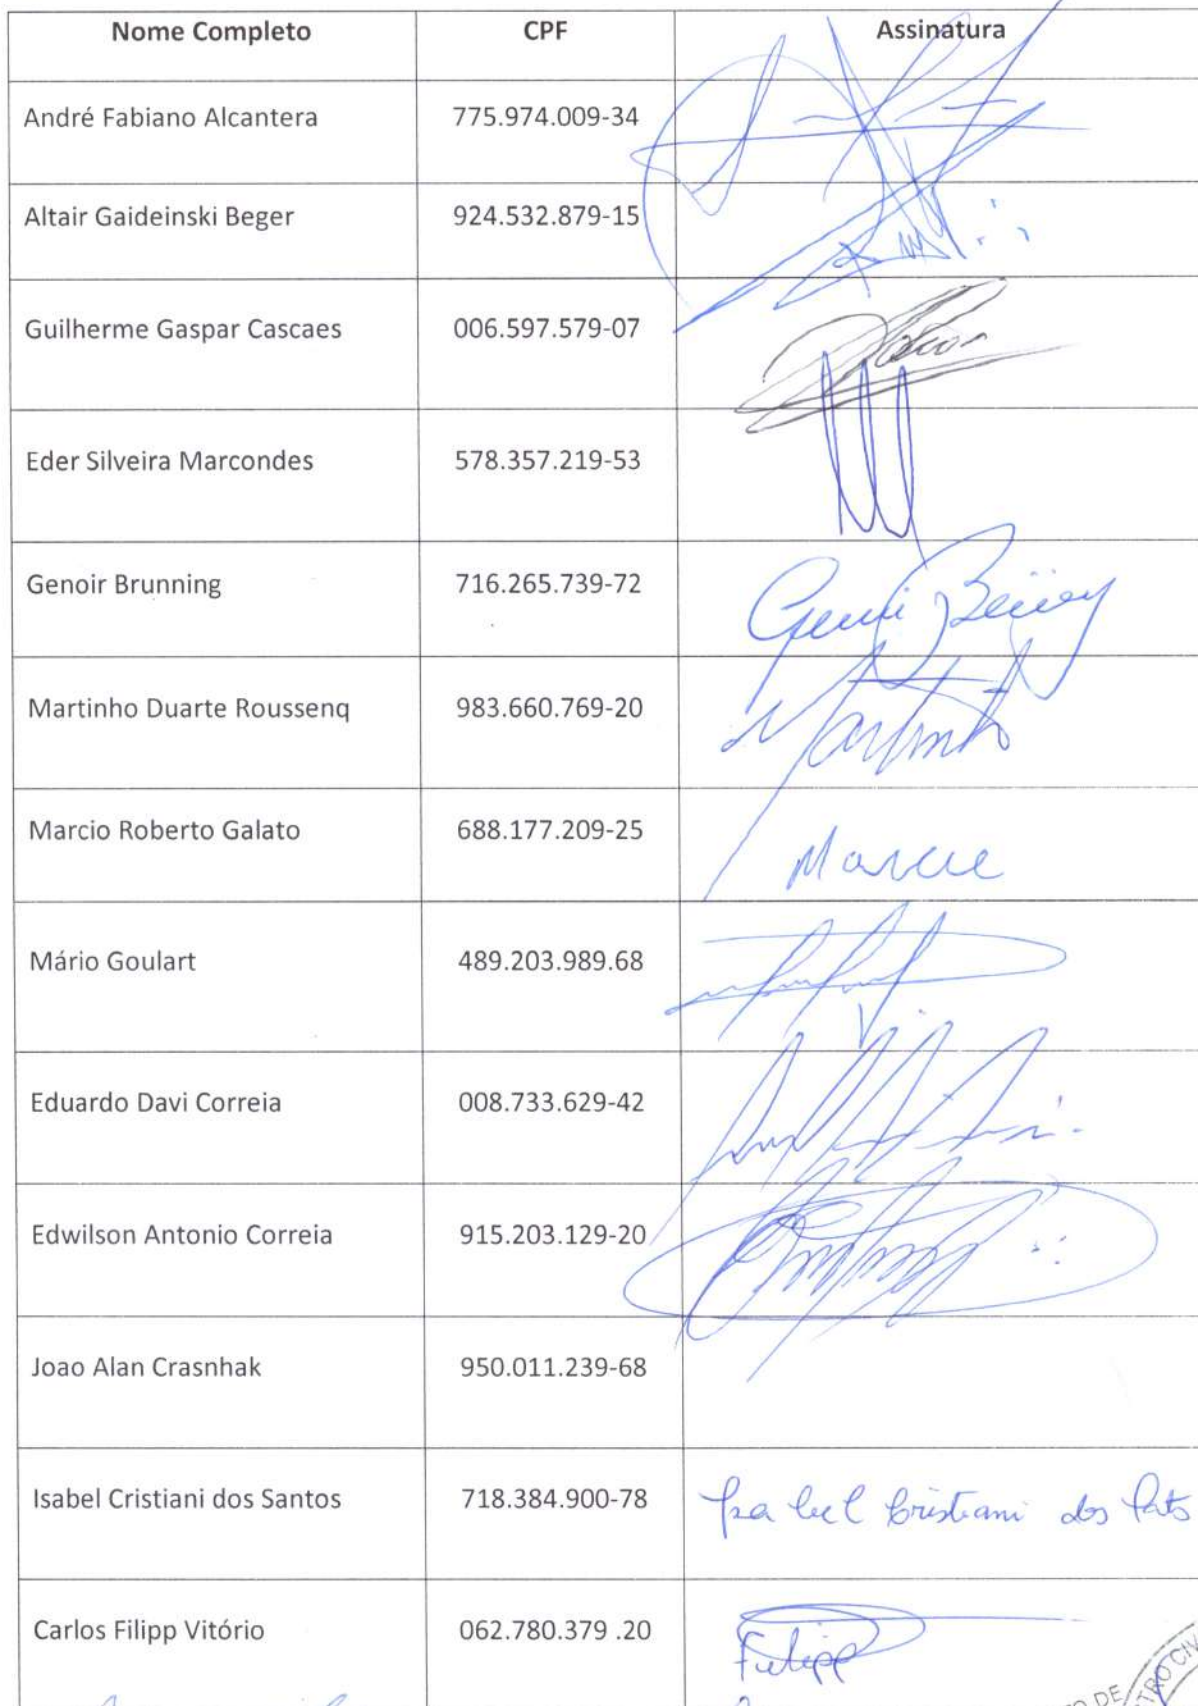 Nome Completo CPF Assinatura
André Fabiano Alcantera 775.974.009-34
Altair Gaideinski Beger 924.532.879-15
Guilherme Gaspar Cascaes 006.597.579-07
Eder Silveira Marcondes 578.357.219-53
Genoir Brunning 716.265.739-72
Martinho Duarte Roussenq 983.660.769-20
Marcio Roberto Galato 688.177.209-25
Mário Goulart 489.203.989.68
Eduardo Davi Correia 008.733.629-42
Edwilson Antonio Correia 915.203.129-20
Joao Alan Crasnhak 950.011.239-68
Isabel Cristiani dos Santos 718.384.900-78 Isabel Cristiani dos
Carlos Filipp Vitório 062.780.379 .20 Filipp